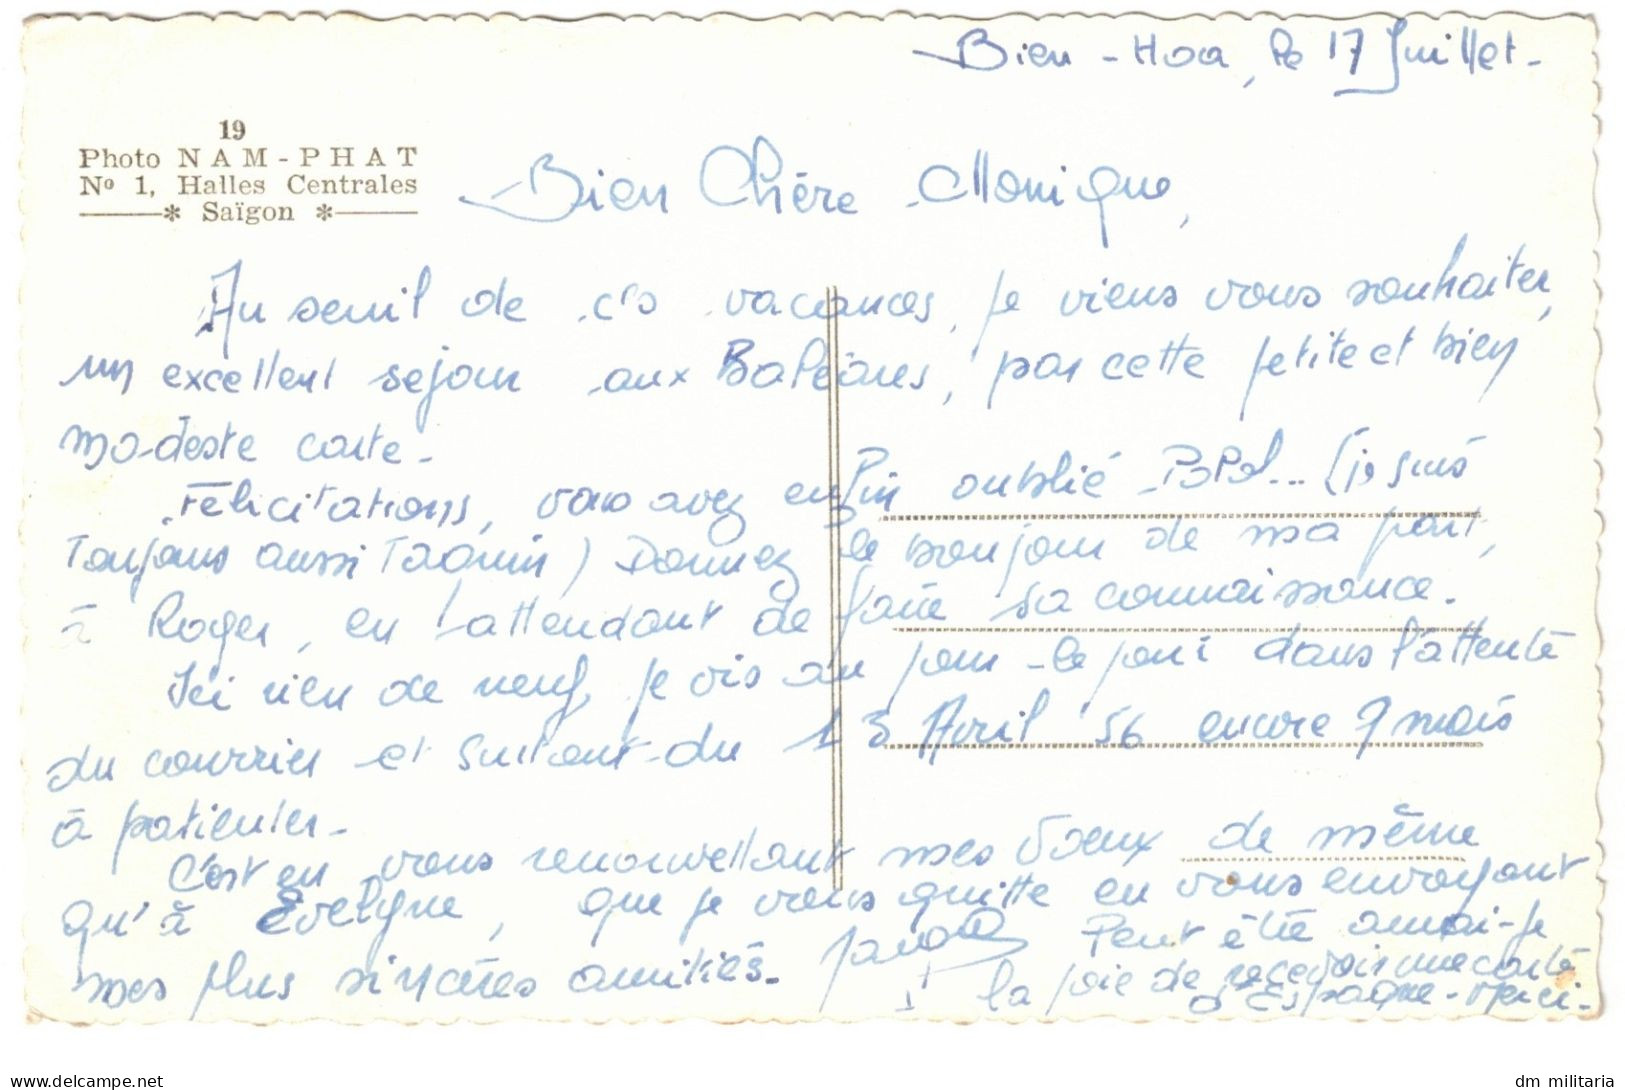 Bien-Hoa, le 17 Juillet-
19
Photo NAM-PHAT
Nº 1, Halles Centrales
* Saïgon *
Bien Chère Monique,
Au seuil de ces vacances, je viens vous souhaiter,
un excellent sejour aux Baléares, par cette petite et bien
modeste carte-
Félicitations, vous avez enfin oublié POPOL... (je suis
Toujours aussi Taquin) Donnez le bonjour de ma part,
à Roger, en attendant de faire sa connaissance.
Ici rien de neuf, je vis au jour-le jour dans l'attente
du courrier et surtout du 13 Avril 56 encore 9 mois
à patienter-
C'est en vous renouvellant mes voeux de même
qu'à Evelyne, que je vous quitte en vous envoyant
mes plus sincères amitiés- Peut être aurai-je
la joie de recevoir une carte
d'Espagne-Merci-
dm militaria